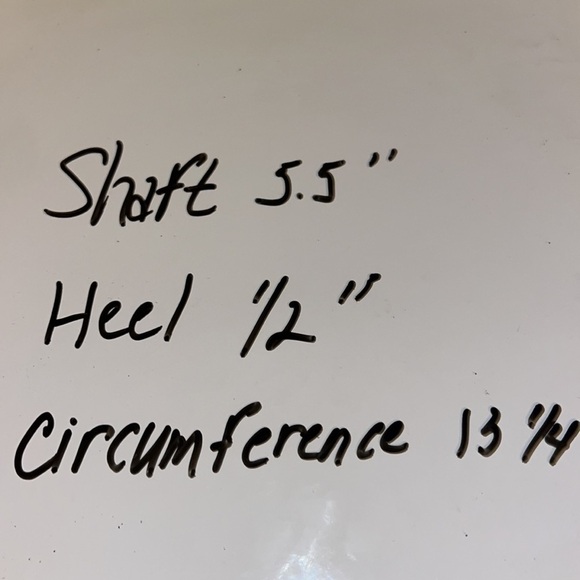 Shaft 5.5"
Heel 1/2"
Circumference 13 1/4